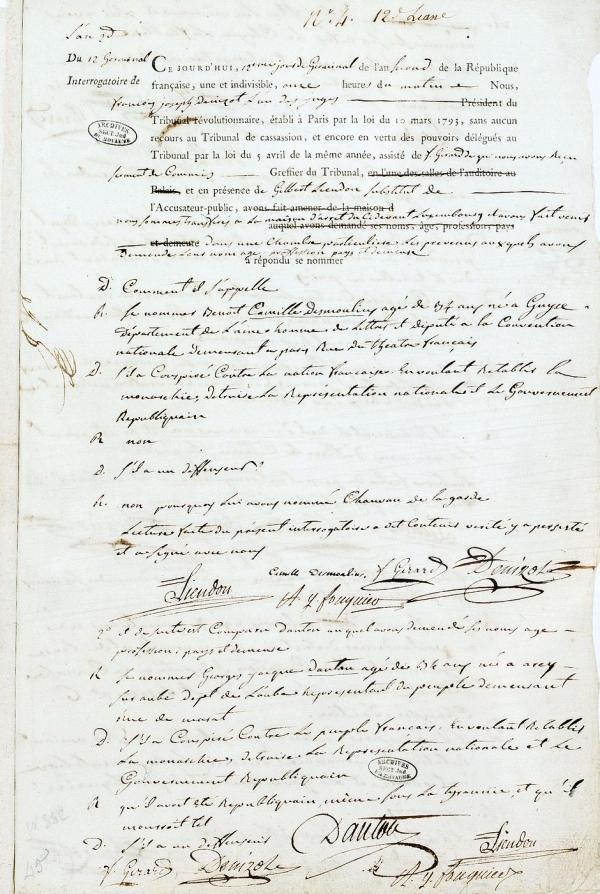 N° 4. 12e Liane
L'an 2d
Du 12 Germinal CE JOURD'HUI, 12eme jour de Germinal de l'an second de la République
Interrogatoire de française, une et indivisible, onze heures du matin Nous,
françois joseph Denizot l'un des juges Président du
Tribunal révolutionnaire, établi à Paris par la loi du 10 mars 1793, sans aucun
recours au Tribunal de cassassion, et encore en vertu des pouvoirs délégués au
Tribunal par la loi du 5 avril de la même année, assisté de f Girard de qui nous avons Reçu
serment de Commis Greffier du Tribunal, en l'une des salles de l'auditoire au
Palais, et en présence de Gilbert Liendon substitut de
l'Accusateur-public, avons fait amener de la maison d
nous sommes transferés a La maison d'arret du Cidevant Luxembourg et avons fait venir
auquel avons demandé ses noms, âge, profession, pays
et demeure dans une Chambre particuliere Les prevenus auxquels avons
demandé Leurs nom age profession pays et demeure
a répondu se nommer
ARCHIVES
SECT. Jud
DU ROYAUME
D. Comment il s'appelle
R. se nommer Benoit Camille Desmoulins agé de 34 ans né a Guyse
Département de L'aine homme de Lettres et député a la Convention
nationale demeurant a paris Rue du theatre français
D. s'il a Conspiré Contre La nation française En voulant Retablir La
monarchie, detruire La Representation nationale et Le Gouvernement
Republiquain
R non
D. s'il a un deffenseur?
R. non pourquoy lui avons nommé Chauvau de la garde
Lecture faite du présent interrogatoire a dit Contenir verité y a persisté
et a signé avec nous
Camille Desmoulins f Girard Denizot
Liendon A. q. fouquier
et de suite est Comparu danton auquel avons demandé ses noms age
profession, pays et demeure
R se nommer Georges jacque danton agé de 34 ans né a arcy
sur aube dept de Laube Representant du peuple demeurant
Rue de marat
D. s'il a Conspiré Contre Le peuple francais, En voulant Retablir
La monarchie, detruire La Representation nationale et Le
Gouvernement Republiquain
ARCHIVES
SECT. Jud
DU ROYAUME
R qu'il avoit été Republiquain même sous La tyrannie et qu'il
mourroit tel
D. s'il a un deffenseur Danton Liendon
f Girard Denizot A. q. fouquier